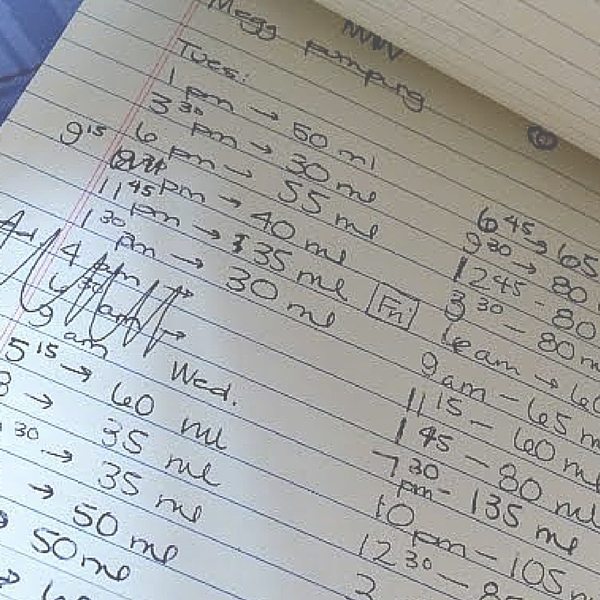 Megg pumping
Tues:
1 pm → 50 ml
3 30 pm → 30 ml
6 pm → 55 ml
9 15 pm → 40 ml
11 45 pm → 35 ml
1 30 am → 30 ml
4 pm →
am →
9 am
Wed.
5 15 → 60 ml
8 → 35 ml
30 → 35 ml
→ 50 ml
50 ml
6 45 → 65
9 30 → 80
12 45 - 80
3 30 - 80 m
Fri
6 am → 60
9 am - 65 m
11 15 - 60 ml
1 45 - 80 ml
7 30 pm - 135 ml
10 pm - 105 m
12 30 - 8